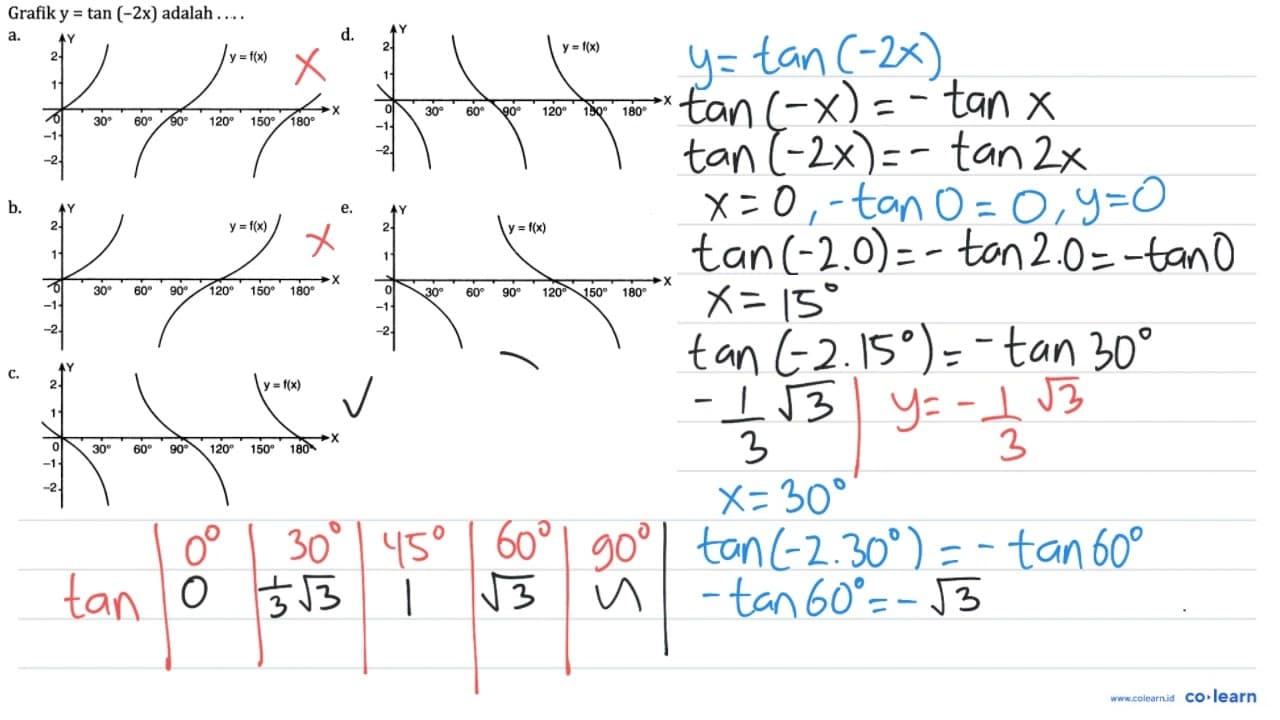 Grafik y = tan (−2x) adalah . . . .
a.
Y
2
1
0
−1
−2
30° 60° 90° 120° 150° 180°
X
y = f(x)
X
d.
Y
2
1
0
−1
−2
30° 60° 90° 120° 150° 180°
X
y = f(x)
b.
Y
2
1
0
−1
−2
30° 60° 90° 120° 150° 180°
X
y = f(x)
X
e.
Y
2
1
0
−1
−2
30° 60° 90° 120° 150° 180°
X
y = f(x)
c.
Y
2
1
0
−1
−2
30° 60° 90° 120° 150° 180°
X
y = f(x)
✓
y = tan (−2x)
tan (−x) = − tan x
tan (−2x) = − tan 2x
x = 0, −tan 0 = 0, y=0
tan(−2.0) = − tan 2.0 = −tan 0
x = 15°
tan (−2.15°) = − tan 30°
− 1/3 √3 | y = − 1/3 √3
x = 30°
tan (−2.30°) = − tan 60°
− tan 60° = − √3
0° 30° 45° 60° 90°
tan 0 1/3 √3 1 √3 ~
www.colearn.id co·learn